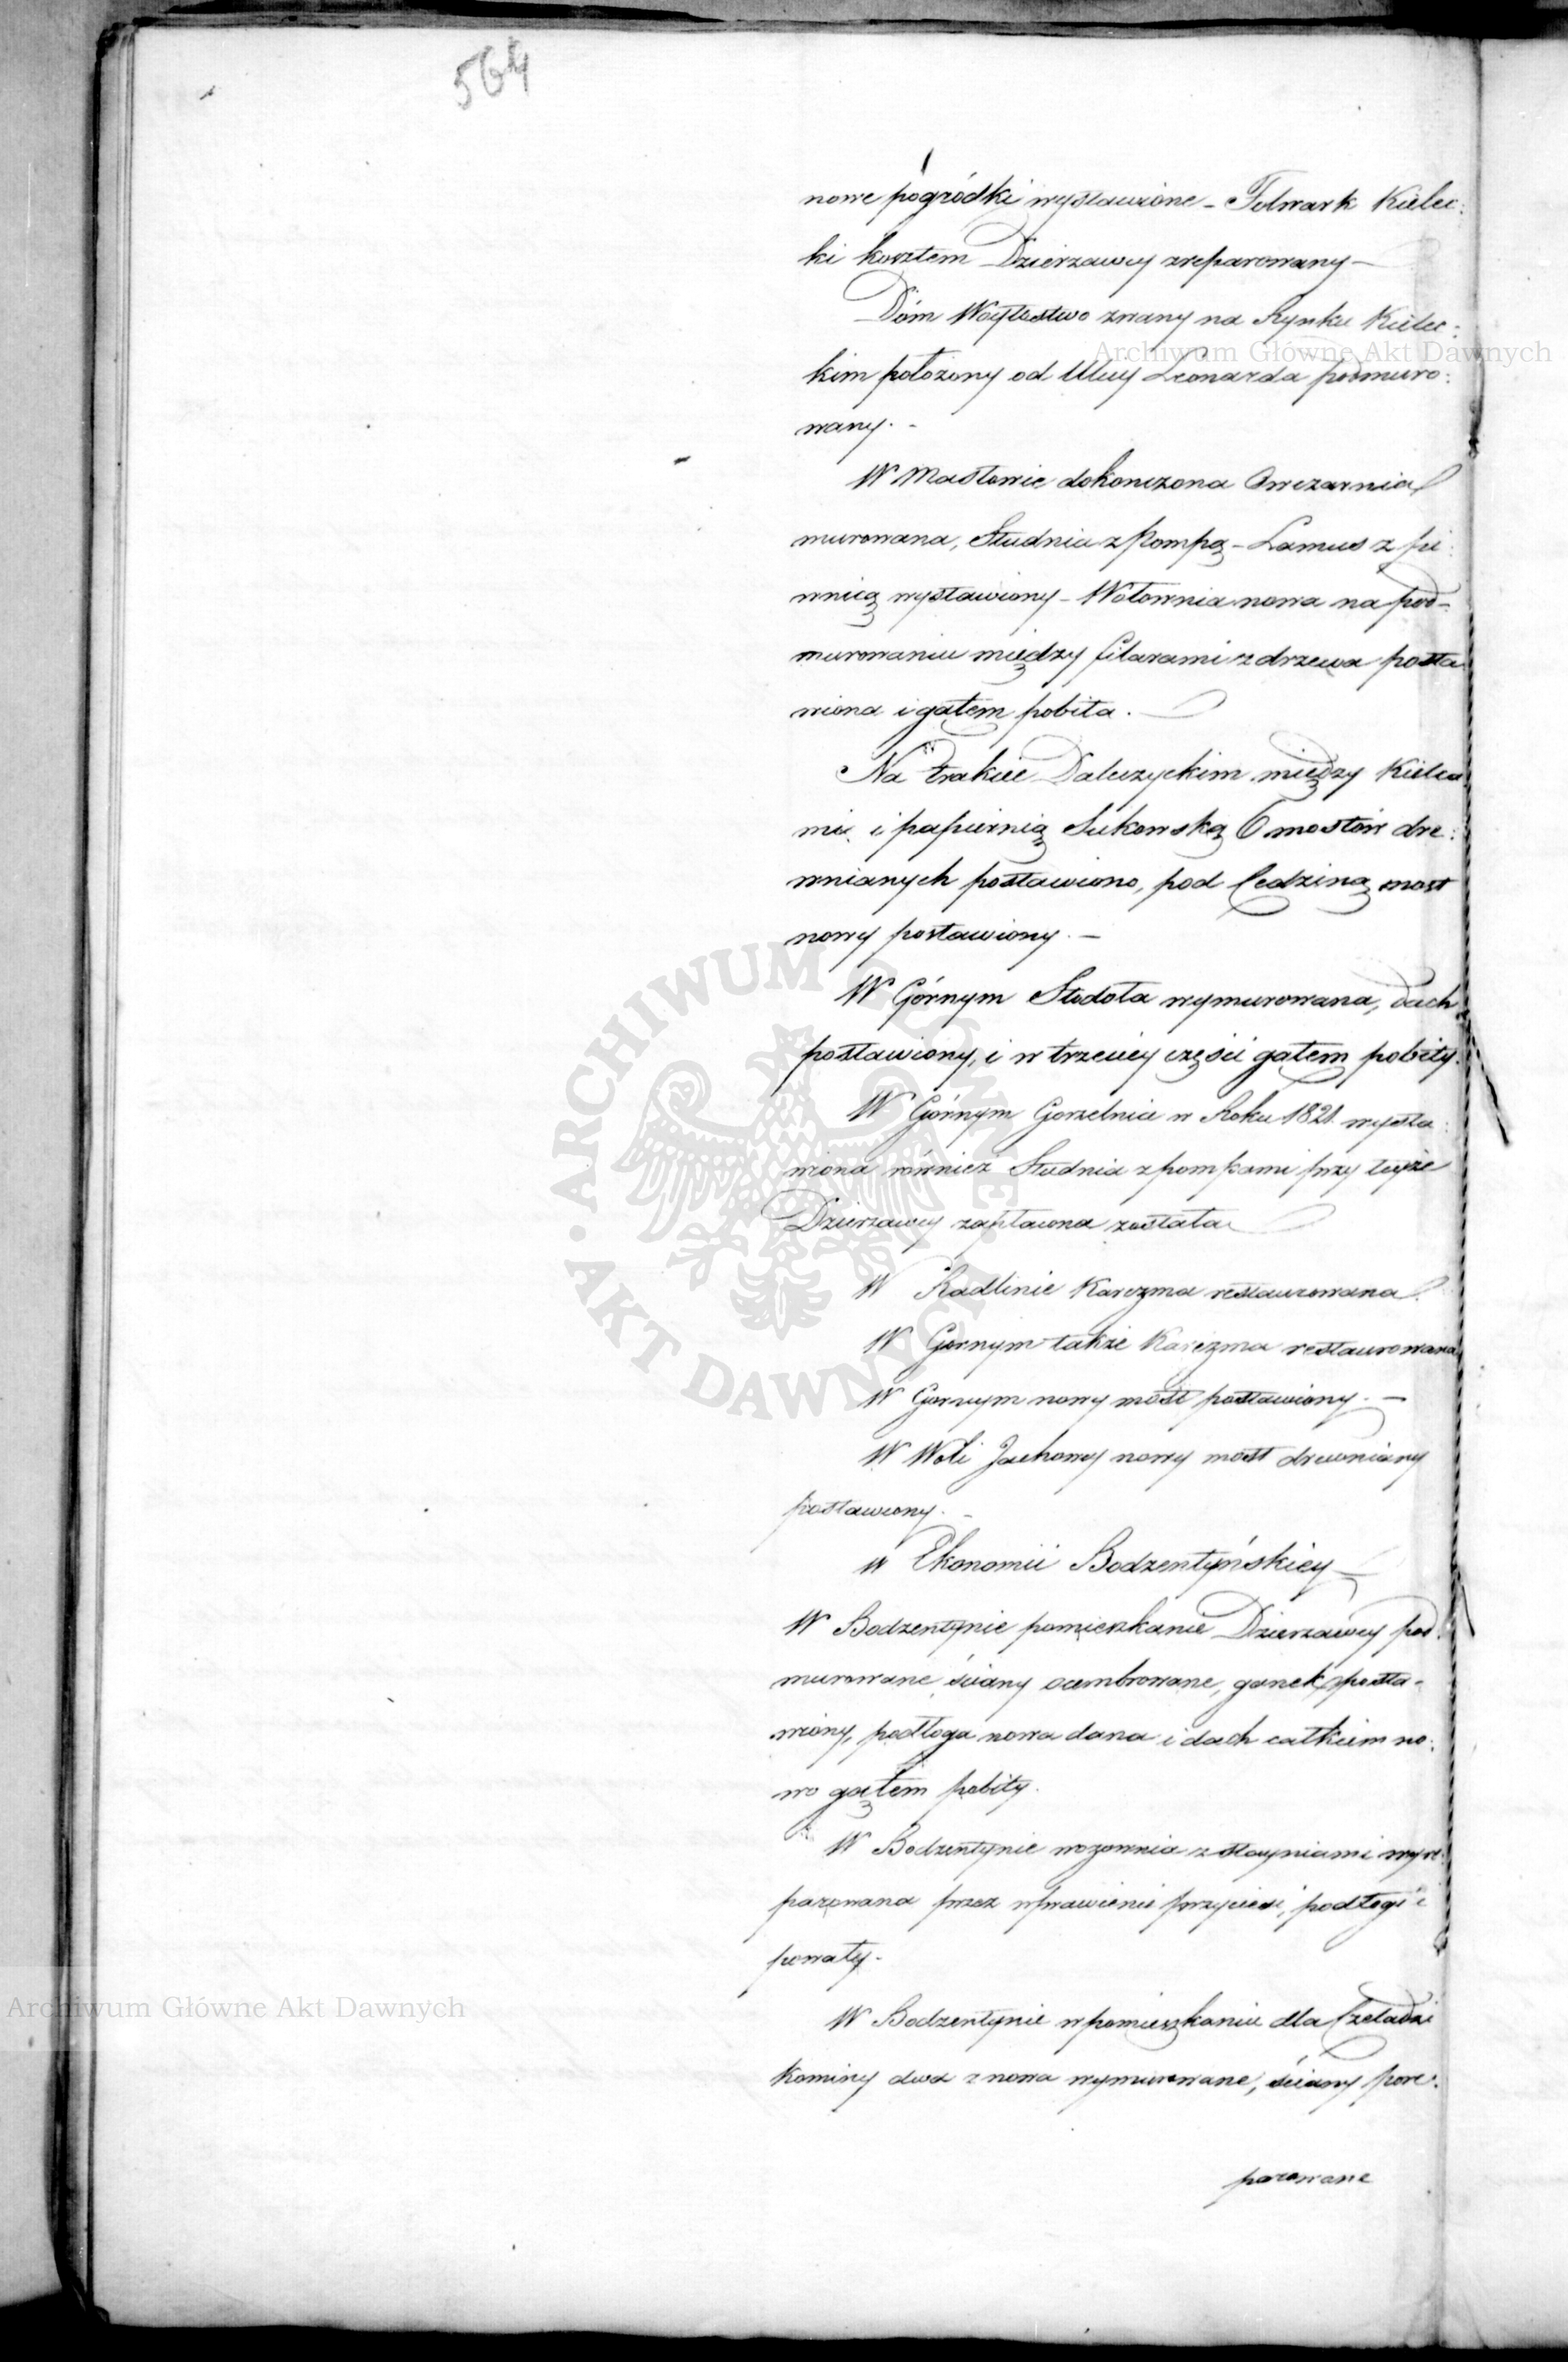 564
nowe pogródki wystawione – Folwark Kielec:
ki kosztem Dzierzawcy zreparowany –
Dóm Woytostwo zwany na Rynku Kielec:
Archiwum Główne Akt Dawnych
kim położony od Ulicy Leonarda podmuro:
wany. -
W Masłowie dokonczona Owczarnia
murowana, Studnia z Pompą – Lamus z pi:
wnicą wystawiony – Wołownia nowa na pod-
murowaniu między filarami z drzewa posta
wiona i gątem pobita. –
Na trakcie Daleszyckim między Kielca
mi i papiernią Sukowską 6 mostów dre:
wnianych postawiono, pod Cedziną most
nowy postawiony. –
W Górnym Stodoła wymurowana, dach
postawiony, i w trzeciey części gątem pobity.
W Górnym Gorzelnia w Roku 1821. wysta:
wiona również Studnia z pompami przy teyże
Dzierzawcy została
W Radlinie Karczma restaurowana.
W Gornym także Karczma restaurowana
W Gornym nowy most postawiony. –
W Woli Jachowey nowy most drewniany
postawiony. –
w Ekonomii Bodzentyńskiey –
W Bodzentynie pomieszkanie Dzierzawcy pod:
murowane ściany ocembrowane, ganek posta-
wiony, podłoga nowa dana i dach całkiem no:
wo gątem pobity.
W Bodzentynie wozownia z stayniami wyre:
parowana przez wprawienie przyciesi, podłogi i
powały. -
W Bodzentynie w pomieszkaniu dla Czeladzi
Archiwum Główne Akt Dawnych
Kominy dwa z nowa wymurowane, ściany pore:
parowane
ARCHIWUM GŁÓWNE · AKT DAWNYCH ·